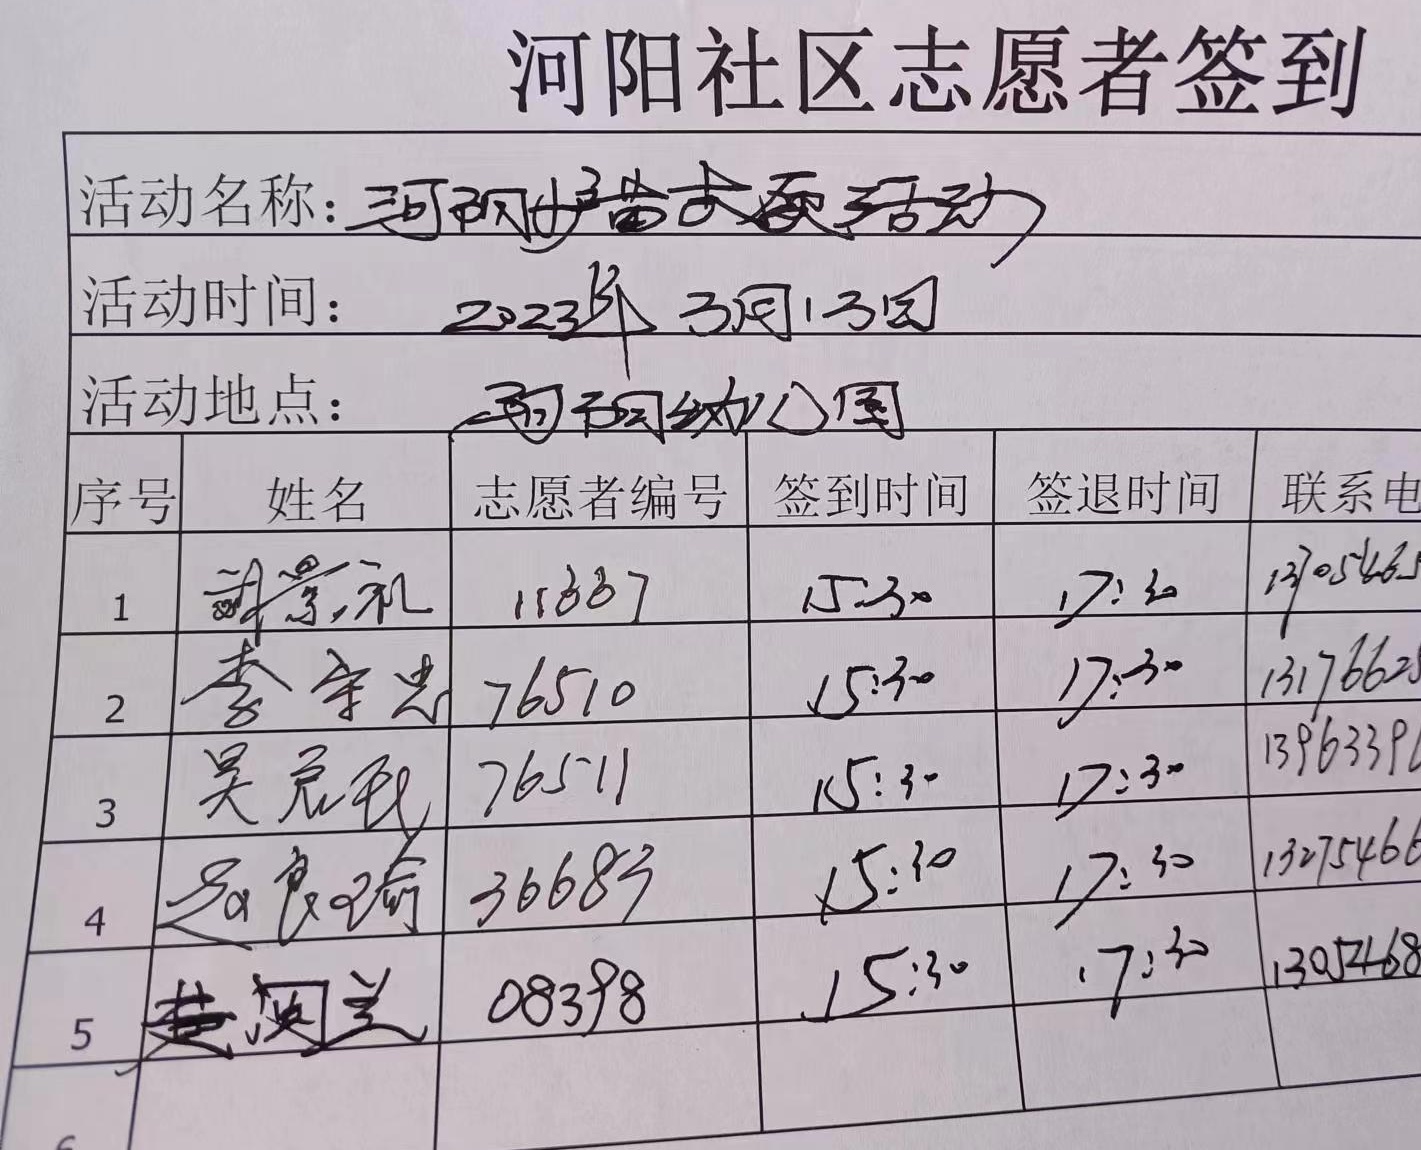 河阳社区志愿者签到
活动名称：河阳护苗志愿活动
活动时间： 2023年 3月13日
活动地点： 河阳幼儿园
序号 姓名 志愿者编号 签到时间 签退时间 联系电
1 景礼 15:30 17:30
2 李守忠 76510 15:30 17:30 1317662
3 吴 76511 15:30 17:30 1396339
4 赵良瑜 36683 15:30 17:30 13275466
5 兰 08398 15:30 17:30